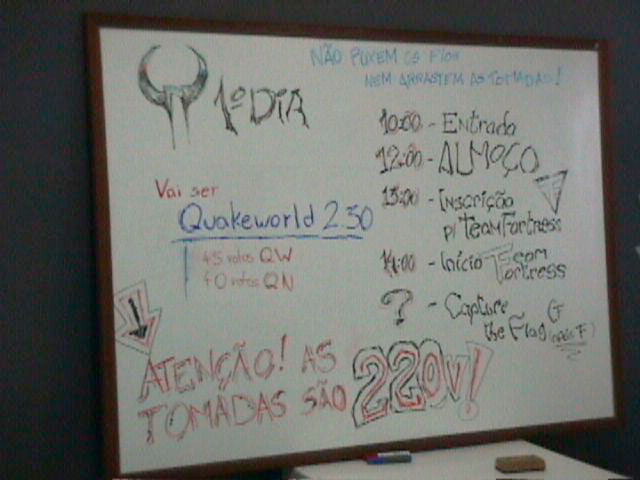 NÃO PUXEM OS FIOS
NEM ARRASTEM AS TOMADAS!
1º DIA
Vai ser
Quakeworld 2.30
45 votos QW
40 votos QN
10:00 - Entrada
12:00 - ALMOÇO
13:00 - Inscrição
p/ TeamFortress
14:00 - Início Team
Fortress
? - Capture
the Flag (após TF)
ATENÇÃO! AS
TOMADAS SÃO 220V!